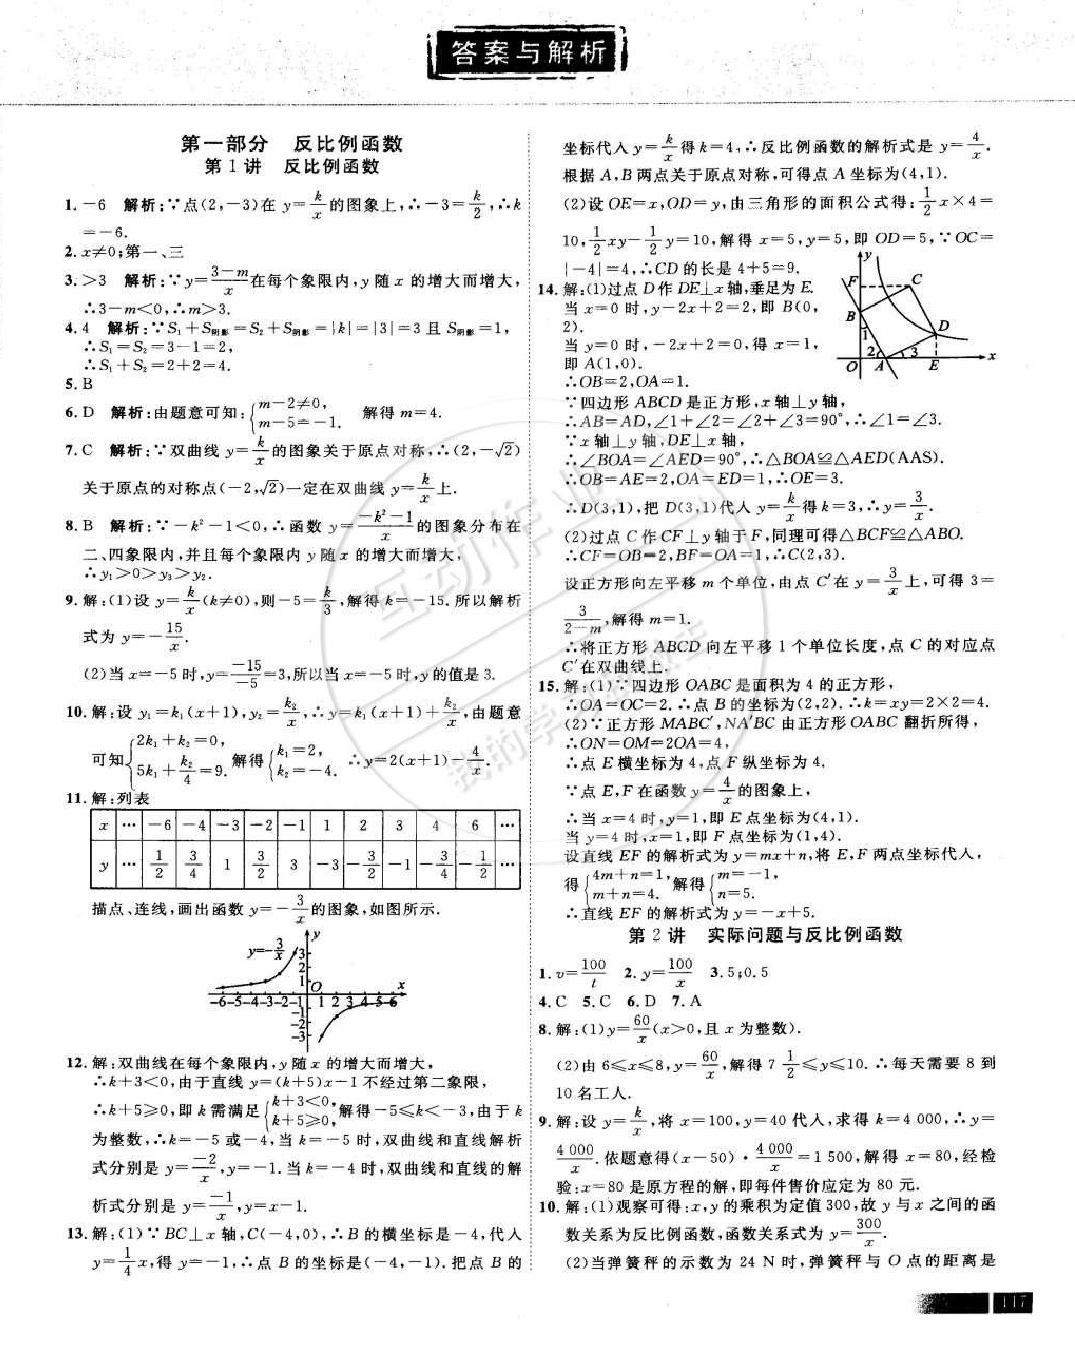 答案与解析
第一部分 反比例函数
第 1 讲 反比例函数
1. －6 解析:∵点(2,－3)在 y＝k/x 的图象上,∴－3＝k/2,∴k
＝－6.
2. x≠0;第一、三
3. ＞3 解析:∵y＝(3－m)/x 在每个象限内,y 随 x 的增大而增大,
∴3－m＜0,∴m＞3.
4. 4 解析:∵S₁＋S阴影＝S₂＋S阴影＝|k|＝|3|＝3 且 S阴影＝1,
∴S₁＝S₂＝3－1＝2,
∴S₁＋S₂＝2＋2＝4.
5. B
6. D 解析:由题意可知:{m－2≠0, m－5＝－1. 解得 m＝4.
7. C 解析:∵双曲线 y＝k/x 的图象关于原点对称,∴(2,－√2)
关于原点的对称点(－2,√2)一定在双曲线 y＝k/x 上.
8. B 解析:∵－k²－1＜0,∴函数 y＝(－k²－1)/x 的图象分布在
二、四象限内,并且每个象限内 y 随 x 的增大而增大,
∴y₁＞0＞y₃＞y₂.
9. 解:(1)设 y＝k/x(k≠0),则－5＝k/3,解得 k＝－15. 所以解析
式为 y＝－15/x.
(2)当 x＝－5 时,y＝－15/－5＝3,所以当 x＝－5 时,y 的值是 3.
10. 解:设 y₁＝k₁(x＋1),y₂＝k₂/x,∴y＝k₁(x＋1)＋k₂/x,由题意
可知{2k₁＋k₂＝0, 5k₁＋k₂/4＝9. 解得{k₁＝2, k₂＝－4. ∴y＝2(x＋1)－4/x.
11. 解:列表
x … －6 －4 －3 －2 －1 1 2 3 4 6 …
y … 1/2 3/4 1 3/2 3 －3 －3/2 －1 －3/4 －1/2 …
描点、连线,画出函数 y＝－3/x 的图象,如图所示.
y＝－3/x
y
3
2
1
O
x
－6－5－4－3－2－1 1 2 3 4 5 6
－1
－2
－3
12. 解:双曲线在每个象限内,y 随 x 的增大而增大。
∴k＋3＜0,由于直线 y＝(k＋5)x－1 不经过第二象限,
∴k＋5≥0,即 k 需满足{k＋3＜0, k＋5≥0, 解得－5≤k＜－3,由于 k
为整数,∴k＝－5 或－4,当 k＝－5 时,双曲线和直线解析
式分别是 y＝－2/x,y＝－1. 当 k＝－4 时,双曲线和直线的解
析式分别是 y＝－1/x,y＝x－1.
13. 解:(1)∵BC⊥x 轴,C(－4,0),∴B 的横坐标是－4,代入
y＝1/4x,得 y＝－1,∴点 B 的坐标是(－4,－1). 把点 B 的
坐标代入 y＝k/x 得 k＝4,∴反比例函数的解析式是 y＝4/x.
根据 A,B 两点关于原点对称,可得点 A 坐标为(4,1).
(2)设 OE＝x,OD＝y,由三角形的面积公式得:1/2x×4＝
10,1/2xy－1/2y＝10,解得 x＝5,y＝5,即 OD＝5,∵OC＝
|－4|＝4,∴CD 的长是 4＋5＝9.
14. 解:(1)过点 D 作 DE⊥x 轴,垂足为 E.
当 x＝0 时,y－2x＋2＝2,即 B(0,
2).
当 y＝0 时,－2x＋2＝0,得 x＝1,
即 A(1,0).
y
F
C
B
1
D
2
3
O
A
E
x
∴OB＝2,OA＝1.
∵四边形 ABCD 是正方形,x 轴⊥y 轴,
∴AB＝AD,∠1＋∠2＝∠2＋∠3＝90°,∴∠1＝∠3.
∵x 轴⊥y 轴,DE⊥x 轴,
∴∠BOA＝∠AED＝90°,∴△BOA≌△AED(AAS).
∴OB＝AE＝2,OA＝ED＝1,∴OE＝3.
∴D(3,1),把 D(3,1)代入 y＝k/x 得 k＝3,∴y＝3/x.
(2)过点 C 作 CF⊥y 轴于 F,同理可得△BCF≌△ABO.
∴CF＝OB＝2,BF＝OA＝1,∴C(2,3).
设正方形向左平移 m 个单位,由点 C′在 y＝3/x 上,可得 3＝
3/(2－m),解得 m＝1.
∴将正方形 ABCD 向左平移 1 个单位长度,点 C 的对应点
C′在双曲线上.
15. 解:(1)∵四边形 OABC 是面积为 4 的正方形,
∴OA＝OC＝2.∴点 B 的坐标为(2,2).∴k＝xy＝2×2＝4.
(2)∵正方形 MABC′,NA′BC 由正方形 OABC 翻折所得,
∴ON＝OM＝2OA＝4,
∴点 E 横坐标为 4,点 F 纵坐标为 4,
∵点 E,F 在函数 y＝4/x 的图象上,
∴当 x＝4 时,y＝1,即 E 点坐标为(4,1).
当 y＝4 时,x＝1,即 F 点坐标为(1,4).
设直线 EF 的解析式为 y＝mx＋n,将 E,F 两点坐标代入,
得{4m＋n＝1, m＋n＝4. 解得{m＝－1, n＝5.
∴直线 EF 的解析式为 y＝－x＋5.
第 2 讲 实际问题与反比例函数
1. v＝100/t 2. y＝100/x 3. 5;0.5
4. C 5. C 6. D 7. A
8. 解:(1)y＝60/x(x＞0,且 x 为整数).
(2)由 6≤x≤8,y＝60/x,解得 7 1/2≤y≤10. ∴每天需要 8 到
10 名工人.
9. 解:设 y＝k/x,将 x＝100,y＝40 代入,求得 k＝4 000,∴y＝
4 000/x. 依题意得(x－50)·4 000/x＝1 500,解得 x＝80,经检
验:x＝80 是原方程的解,即每件售价应定为 80 元.
10. 解:(1)观察可得:x,y 的乘积为定值 300,故 y 与 x 之间的函
数关系为反比例函数,函数关系式为 y＝300/x.
(2)当弹簧秤的示数为 24 N 时,弹簧秤与 O 点的距离是
117
互动作业